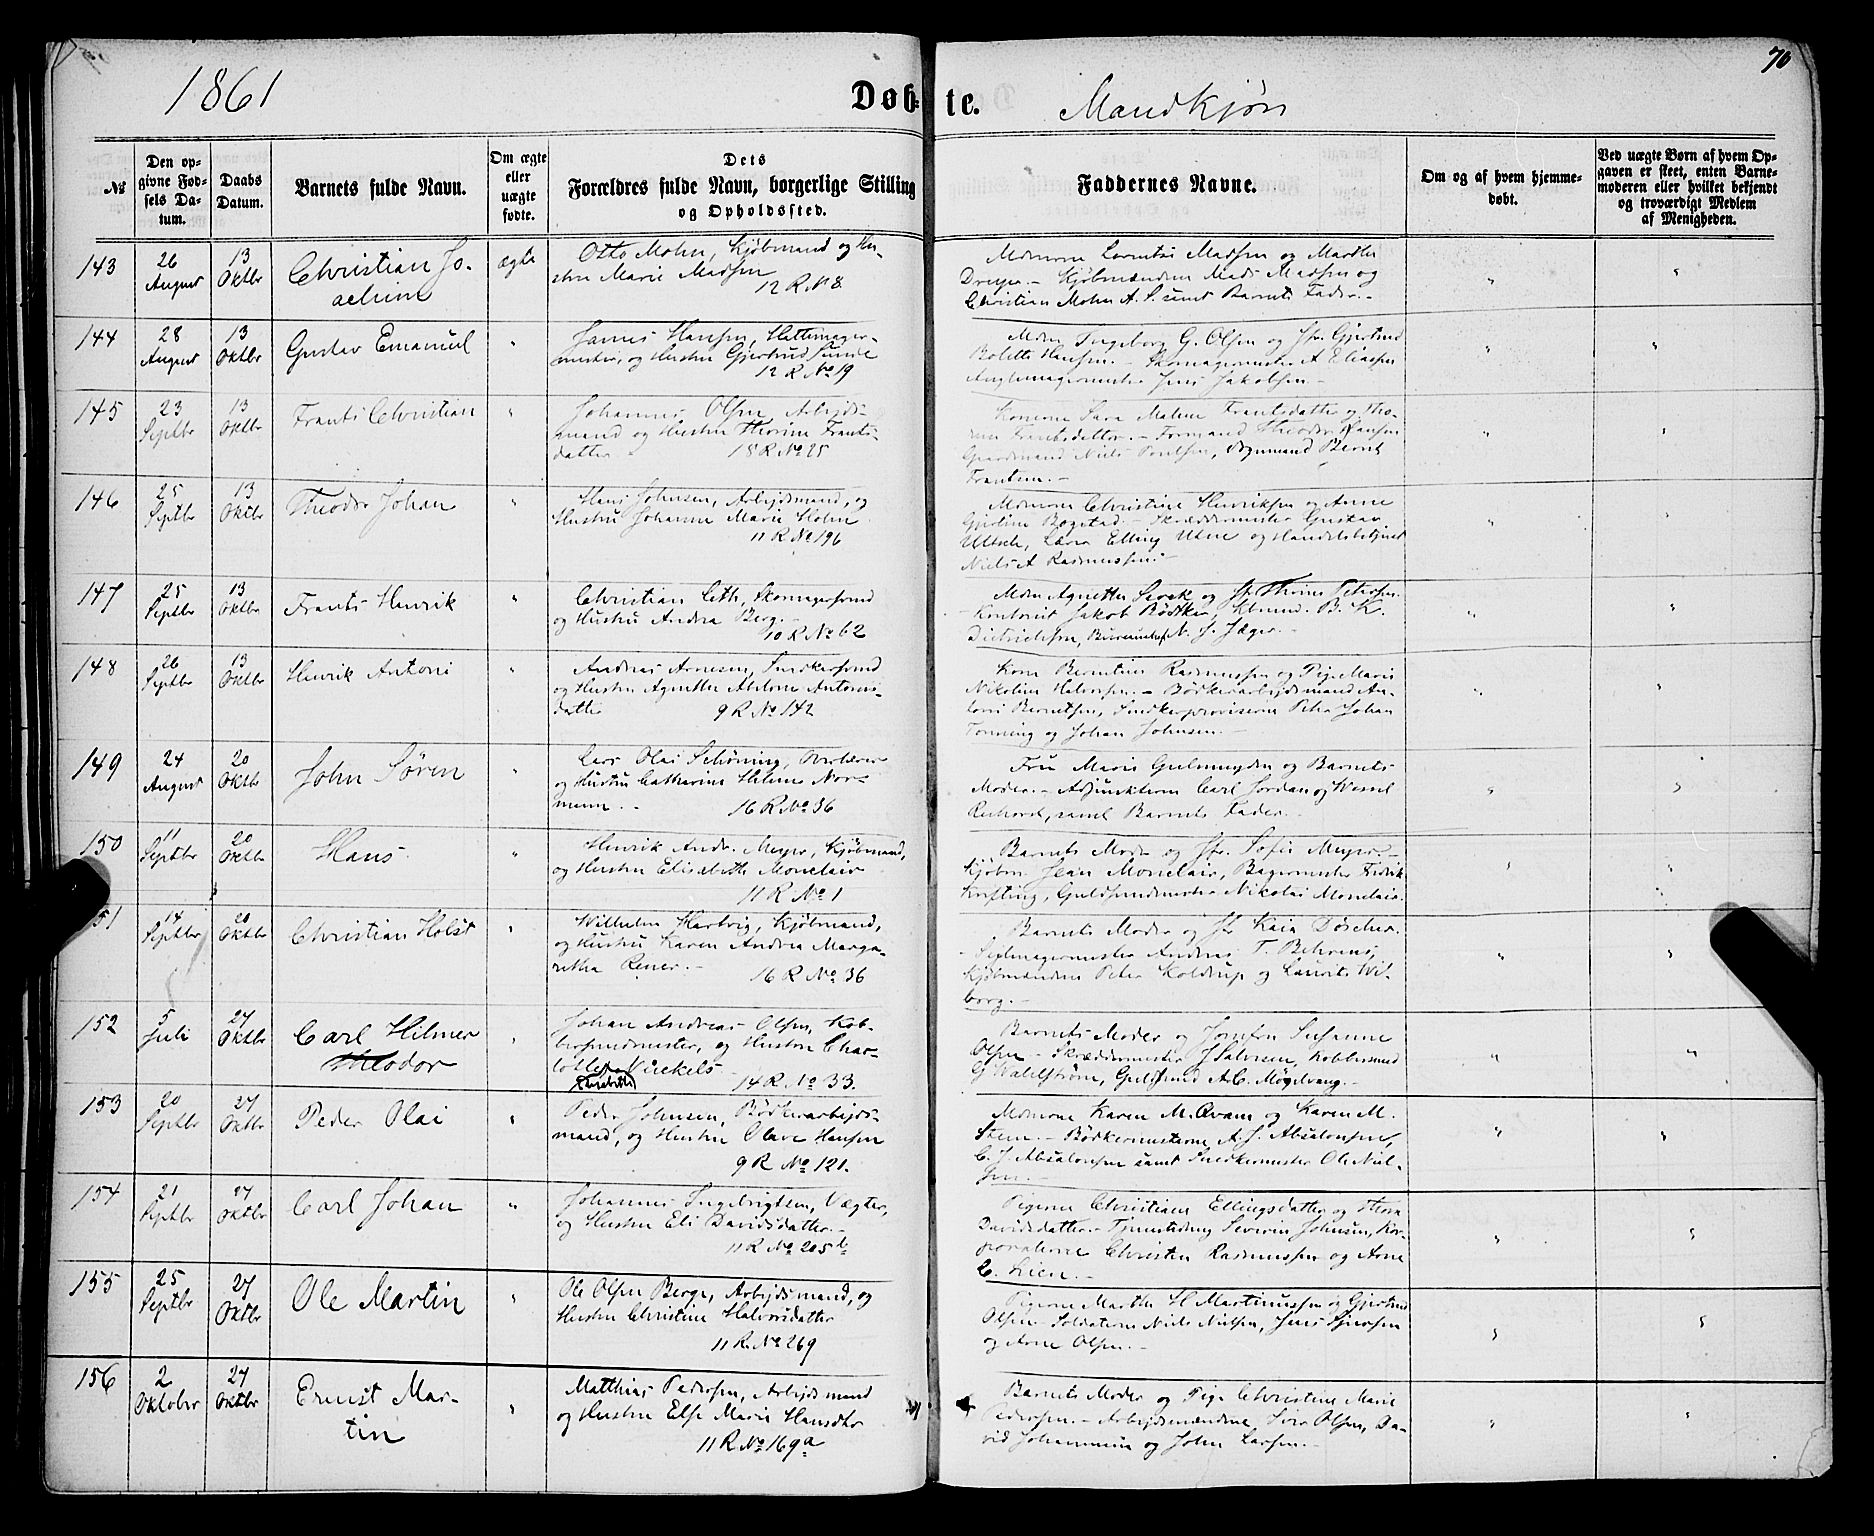 70
1861
Døb-te.
Mandkjøn
№
Den op-
givne Fød-
sels Da-
tum.
Daabs
Datum.
Barnets fulde Navn.
Om ægte
eller
uægte
fødte.
Dets
Forældres fulde Navn, borgerlige Stilling
og Opholdssted.
Faddernes Navne.
Om og af hvem hjemme-
døbt.
Ved uægte Børn af hvem Op-
gaven er skeet, enten Barne-
moderen eller hvilket bekjendt
og troværdigt Medlem
af Menigheden.
143
26
August
13
Oktbr
Christian Jo-
achim
ægte
Otto Mohn, Kjøbmand og Hu-
stru Marie Madsen
12 R № 8
Madsen og Marthe
Kjøbmændene Mads Madsen og
Christian Mohn A. S. samt Barnets Fader.-
144
28
August
13
Oktbr
Gustav Emanuel
"
Hansen, Hattemager-
mester, og Hustru Gjertrud Sunde
12 R № 19
Ingeborg G. Olsen og Jfr. Gjertrud
Bolette Hansen. A Eliassen
Jens Jakobsen -
145
23
Septbr
13
Oktbr
Frants Christian
"
Johannes Olsen, Arbejds-
mand og Hustru Thorine Frants-
datter
18 R № 25
Konerne Sara Malene Frantsdatter og Tho-
rine Frantsdatter. - Formand Theodor Hansen
Gaardmand Niels Poulsen, Bernt
Frantsen. -
146
25
Septbr
13
Oktbr
Theodor Johan
"
Hans Johnsen, Arbejdsmand, og
Hustru Johanne Marie Holm
11 R № 196
Christine Henriksen og Anne
Bogstad. - Skræddermester Gustav
Elling Utne og Handelsbetjent
Niels A Rasmussen. -
147
25
Septbr
13
Oktbr
Frants Henrik
"
Christian Skomagersvend
og Hustru Andrea Berg. -
10 R № 62
Agnette og Jfr Thrine Petersen.
- Kontorist Jakob Bødtker, B. K.
Dietrichsen, N. J. Jæger. -
148
26
Septbr
13
Oktbr
Henrik Antoni
"
Andreas Arnesen, Snedkersvend
og Hustru Agnethe Antonis-
datter
9 R № 142
Kone Berentine Rasmussen og Pige Maria
Nikoline Halvorsen. - Bødkerarbejdsmand An-
toni Berntsen, Peter Johan
Tonning og Johan Johnsen. -
149
24
August
20
Oktbr
John Søren
"
Lars Olai Schøning, Overlærer
og Hustru Catharine Helene Nor-
mann. -
16 R № 36
Fru Marie og Barnets
Moder. - Adjunkterne Carl Jordan og Wessel
samt Barnets Fader. -
150
11
Septbr
20
Oktbr
Hans
"
Henrik Andr. Meyer, Kjøbmand,
og Hustru Elisabeth Monclair
11 R № 1
Barnets Moder og Jfr. Sofie Meyer. -
Kjøbm. Jean Monclair, Bagermester Fredrik
Krefting, Guldsmedmester Nikolai Monclair.
151
14
Septbr
20
Oktbr
Christian Holst
"
Wilhelm Hartvig, Kjøbmand,
og Hustru Karen Andrea Marga-
retha Rener. -
16 R № 36
Barnets Moder og Jfr Kaia Döscher.
- Seilmagermester Andreas T. Behrens,
Kjøbmændene Peter Koldrup og Laurits Wi-
borg. -
152
5
Juli
27
Oktbr
Carl Hilmer
Theodor
"
Johan Andreas Olsen, Kob-
bersmedmester, og Hustru Char-
lotte Nückels
14 R № 33.
Barnets Moder og Jomfru Susanne
Olsen - Skræddermester J Salvesen, Kobbersmed
Wahlstrøm, Guldsmed A. C. Møgelvang. -
153
20
Septbr
27
Oktbr
Peder Olai
"
Peder Johnsen, Bødkerarbejds-
mand, og Hustru Olave Hansen
9 R № 121.
Karen M. Qvam og Karen M.
Steen. - Bødkermesterne A. J. Absalonsen,
C. J. Absalonsen samt Snedkermester Ole Niel-
sen. -
154
21
Septbr
27
Oktbr
Carl Johan
"
Johannes Ingebrigtsen, Vægter,
og Hustru Eli Davidsdatter. -
11 R № 205 b
Pigerne Christiane Ellingsdatter og Thora
Davidsdatter. - Tjenestedreng Severin Johnsen, Kor-
poralerne Christen Rasmussen og Arne
L. Lien. -
155
25
Septbr
27
Oktbr
Ole Martin
"
Ole Olsen Berge, Arbejdsmand, og
Hustru Christine Halvorsdatter
11 R. № 269
Pigerne Marthe H Martinussen og Gjertrud
Olsen - Soldaterne Niels Nielsen, Jens
og Arne Olsen. -
156
2
Oktober
27
Oktbr
Ernst Mar-
tin
"
Matthias Pedersen, Arbejdsmand
og Hustru Else Marie Hansdtr
11 R № 169 a
Barnets Moder og Pige Christine Marie
Pedersen. - Arbejdsmændene, Iver Olsen, Da-
vid Johannesen og John Larsen. -